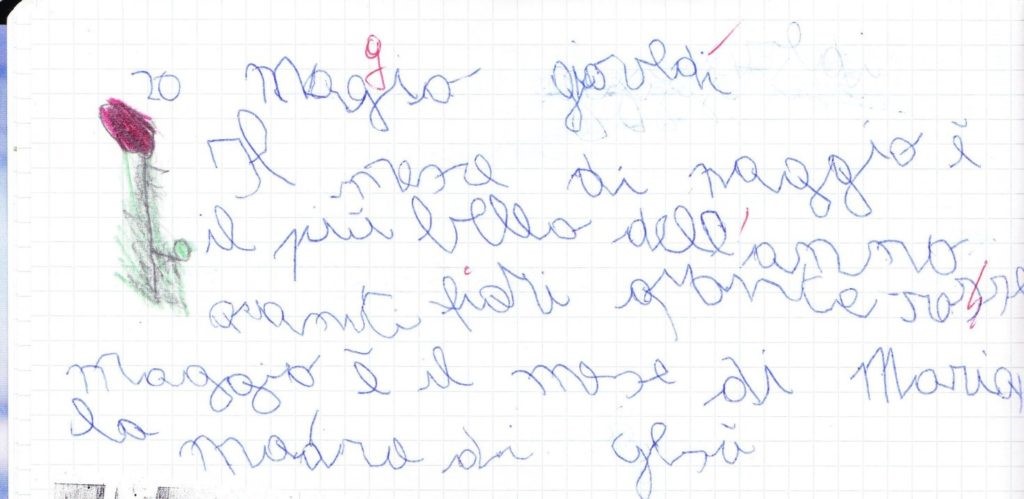 20 Maggio giovldí
Il mese di maggio è
il più bello dell'anno
quanti fiori quante rose
maggio è il mese di Maria
la madre di gesù